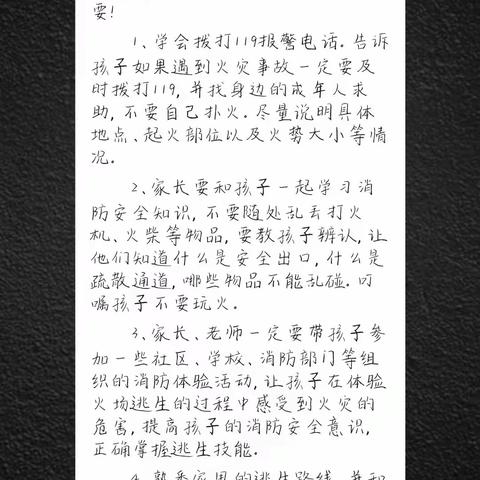 要!
1、学会拨打119报警电话.告诉
孩子如果遇到火灾事故一定要及
时拨打119,并找身边的成年人求
助,不要自己扑火.尽量说明具体
地点、起火部位以及火势大小等情
况.
2、家长要和孩子一起学习消
防安全知识,不要随处乱丢打火
机、火柴等物品,要教孩子辨认,让
他们知道什么是安全出口,什么是
疏散通道,哪些物品不能乱碰.叮
嘱孩子不要玩火.
3、家长、老师一定要带孩子参
加一些社区、学校、消防部门等组
织的消防体验活动,让孩子在体验
火场逃生的过程中感受到火灾的
危害,提高孩子的消防安全意识,
正确掌握逃生技能.
4.熟悉家里的逃生路线,并和